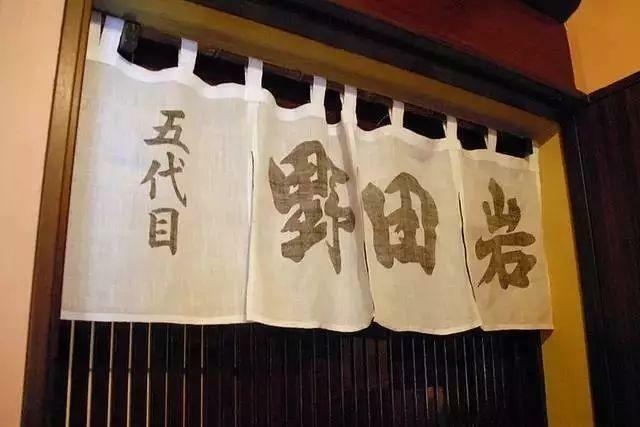 五代目
野田岩